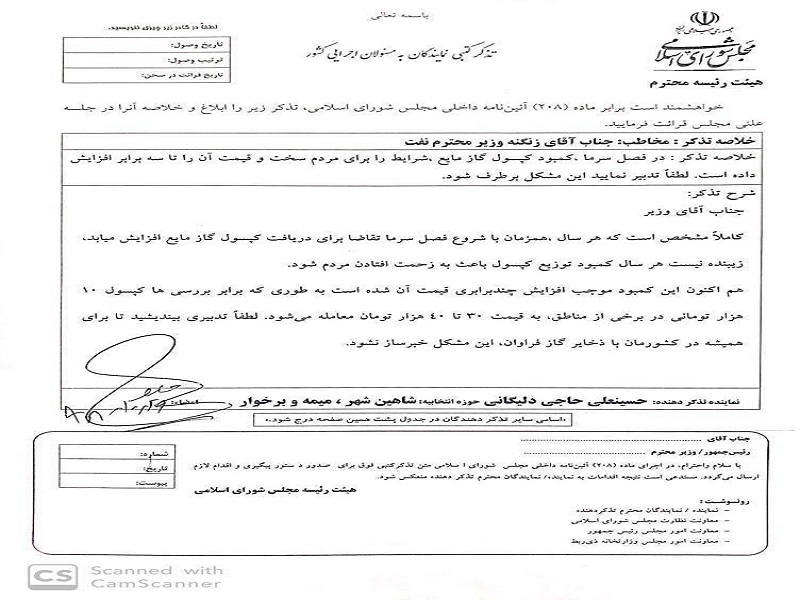 باسمه تعالی
جمهوری اسلامی ایران
مجلس شورای اسلامی
تذکر کتبی نمایندگان به مسئولان اجرایی کشور
لطفاً در کادر زیر چیزی ننویسید.
تاریخ وصول:
ترتیب وصول:
تاریخ قرائت در صحن:
هیئت رئیسه محترم
خواهشمند است برابر ماده (۲۰۸) آئین‌نامه داخلی مجلس شورای اسلامی، تذکر زیر را ابلاغ و خلاصه آنرا در جلسه
علنی مجلس قرائت فرمایید.
خلاصه تذکر : مخاطب: جناب آقای زنگنه وزیر محترم نفت
خلاصه تذکر : در فصل سرما ،کمبود کپسول گاز مایع ،شرایط را برای مردم سخت و قیمت آن را تا سه برابر افزایش
داده است. لطفاً تدبیر نمایید این مشکل برطرف شود.
شرح تذکر:
جناب آقای وزیر
کاملاً مشخص است که هر سال ،همزمان با شروع فصل سرما تقاضا برای دریافت کپسول گاز مایع افزایش میابد،
زیبنده نیست هر سال کمبود توزیع کپسول باعث به زحمت افتادن مردم شود.
هم اکنون این کمبود موجب افزایش چندبرابری قیمت آن شده است به طوری که برابر بررسی ها کپسول ۱۰
هزار تومانی در برخی از مناطق، به قیمت ۳۰ تا ۴۰ هزار تومان معامله می‌شود. لطفاً تدبیری بیندیشید تا برای
همیشه در کشورمان با ذخایر گاز فراوان، این مشکل خبرساز نشود.
نماینده تذکر دهنده: حسینعلی حاجی دلیگانی حوزه انتخابیه: شاهین شهر ، میمه و برخوار امضاء:
«اسامی سایر تذکر دهندگان در جدول پشت همین صفحه درج شود.»
جناب آقای
رئیس‌جمهور/ وزیر محترم
شماره:
تاریخ:
پیوست:
با سلام واحترام، در اجرای ماده (۲۰۸) آئین‌نامه داخلی مجلس شورای اسلامی متن تذکرکتبی فوق برای صدور دستور پیگیری و اقدام لازم
ارسال می‌گردد. مستدعی است نتیجه اقدامات به نماینده/ نمایندگان محترم تذکر دهنده منعکس شود.
هیئت رئیسه مجلس شورای اسلامی
رونوشت:
- نماینده / نمایندگان محترم تذکردهنده
- معاونت نظارت مجلس شورای اسلامی
- معاونت امور مجلس رئیس جمهور
- معاونت امور مجلس وزارتخانه ذی‌ربط
CS Scanned with
CamScanner